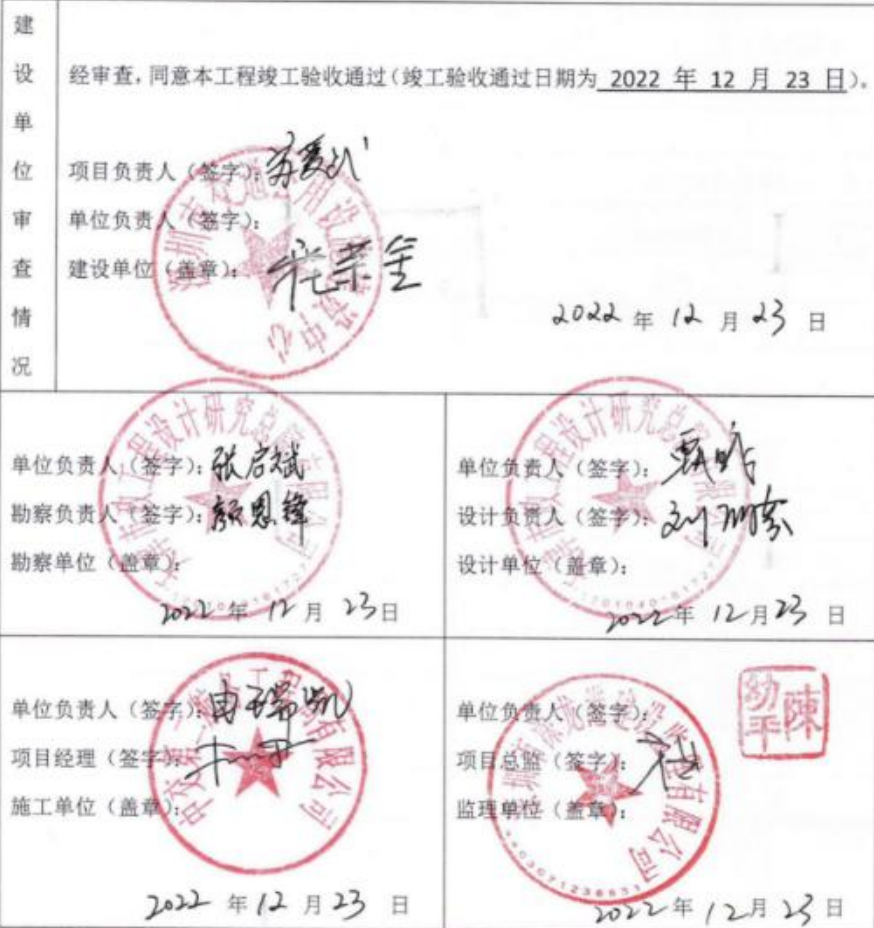 建设单位审查情况
经审查，同意本工程竣工验收通过（竣工验收通过日期为 2022 年 12 月 23 日）。
项目负责人（签字）：
单位负责人（签字）：
建设单位（盖章）：
2022 年 12 月 23 日
单位负责人（签字）：张启斌
勘察负责人（签字）：颜恩锋
勘察单位（盖章）：
2022 年 12 月 23 日
单位负责人（签字）：
设计负责人（签字）：
设计单位（盖章）：
2022 年 12 月 23 日
单位负责人（签字）：
项目经理（签字）：
施工单位（盖章）：
2022 年 12 月 23 日
单位负责人（签字）：
陳幼平
项目总监（签字）：
监理单位（盖章）：
2022 年 12 月 23 日